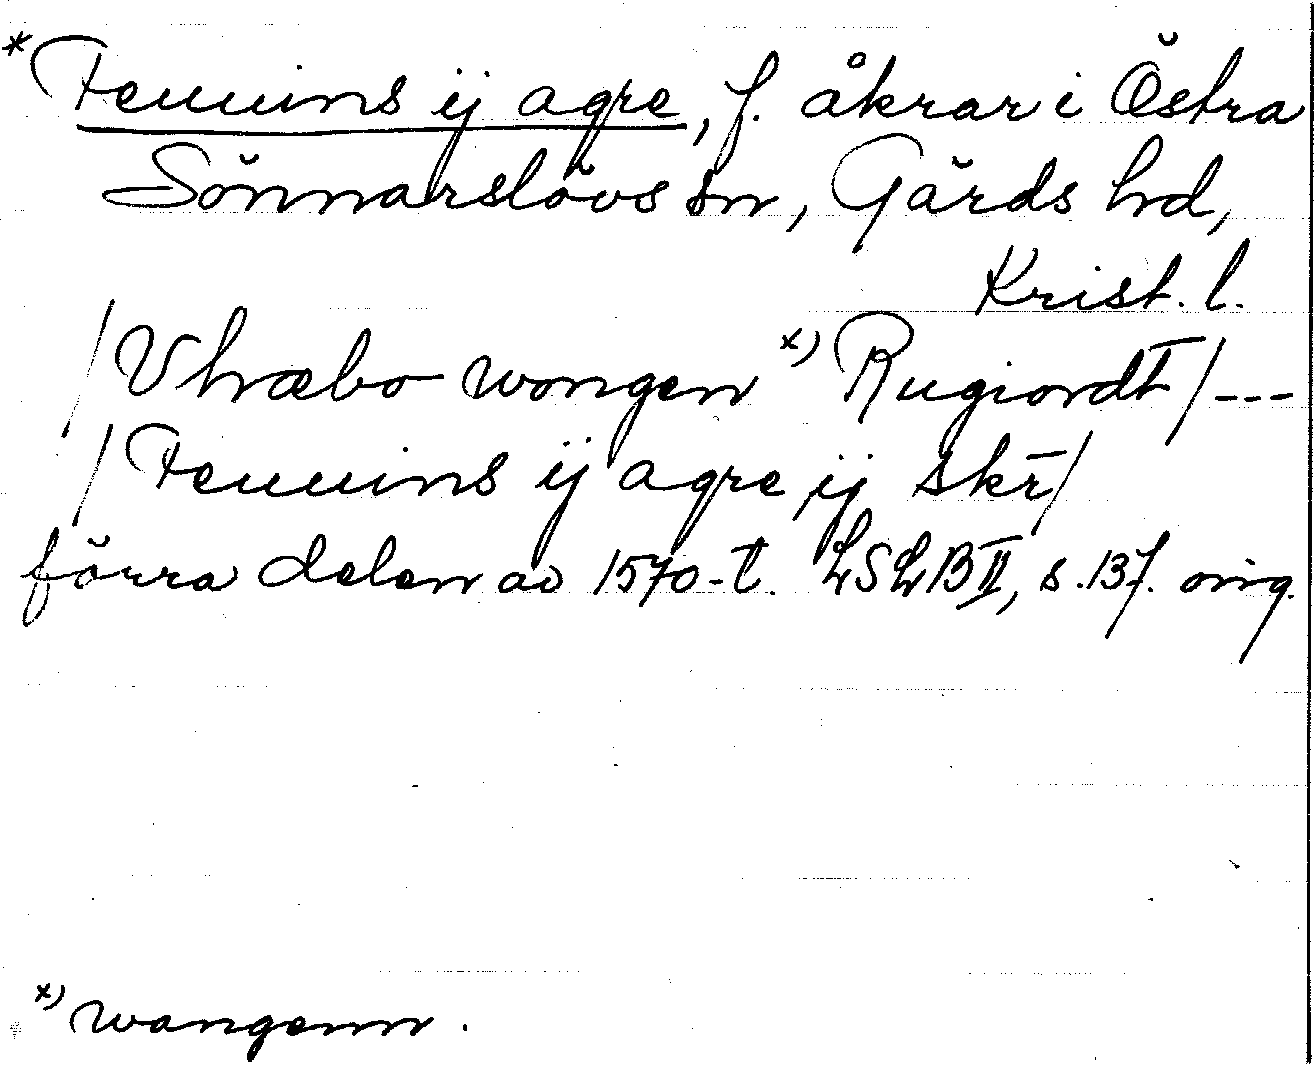 *Femmins ij agre, f. åkrar i Östra
Sönnarslövs sn, Gärds hd,
Krist. l.
/Vhræbo wongen x) Rugiordt/---
/Femmins ij agre ij skr̄/
förra delen av 1570-t. LSLB II, s. 137. orig.
x) wangenn.